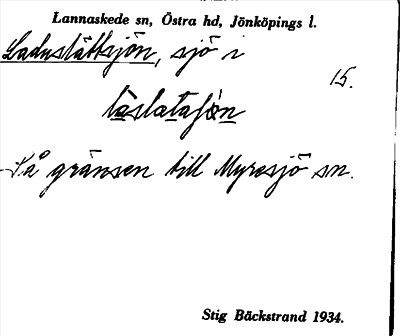 Lannaskede sn, Östra hd, Jönköpings l.
Laduslättsjön, sjö i
15.
låslatasjön
På gränsen till Myresjö sn.
Stig Bäckstrand 1934.